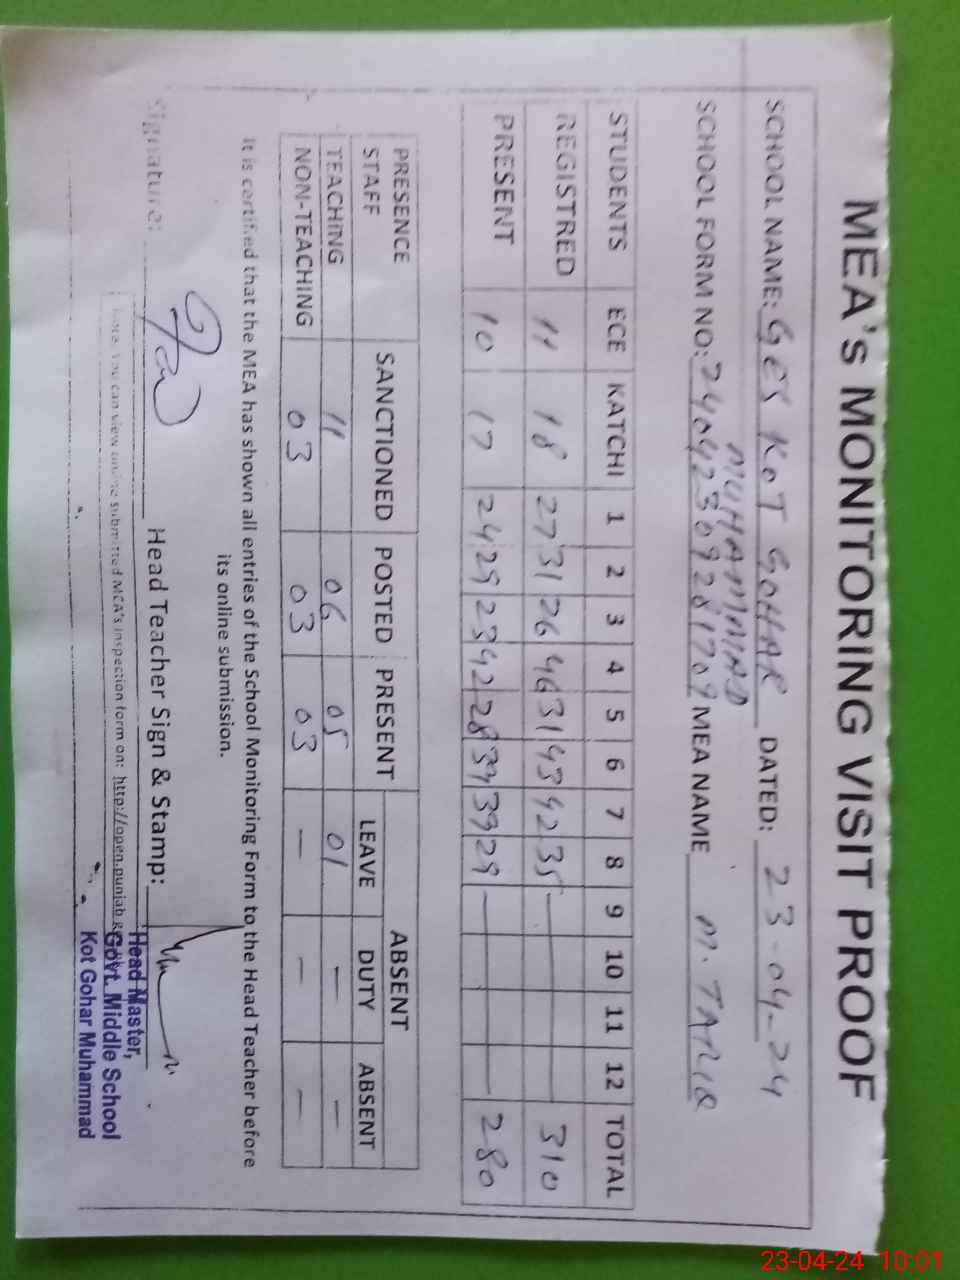 MEA's MONITORING VISIT PROOF
SCHOOL NAME: GES KOT GOHAR DATED: 23-04-24
MUHAMMAD
SCHOOL FORM NO: 24042309281709 MEA NAME M. TARIQ
STUDENTS ECE KATCHI 1 2 3 4 5 6 7 8 9 10 11 12 TOTAL
REGISTRED 11 18 27 31 26 46 31 43 42 35 — 310
PRESENT 10 17 24 29 23 42 28 39 39 29 — 280
PRESENCE SANCTIONED POSTED PRESENT ABSENT
STAFF LEAVE DUTY ABSENT
TEACHING 11 06 05 01 — —
NON-TEACHING 03 03 03 — — —
It is certified that the MEA has shown all entries of the School Monitoring Form to the Head Teacher before
its online submission.
Signature: Head Teacher Sign & Stamp:
Head Master,
Govt. Middle School
Kot Gohar Muhammad
Note: You can view online submitted MCA's inspection form on: http://open.punjab
23-04-24 10:01